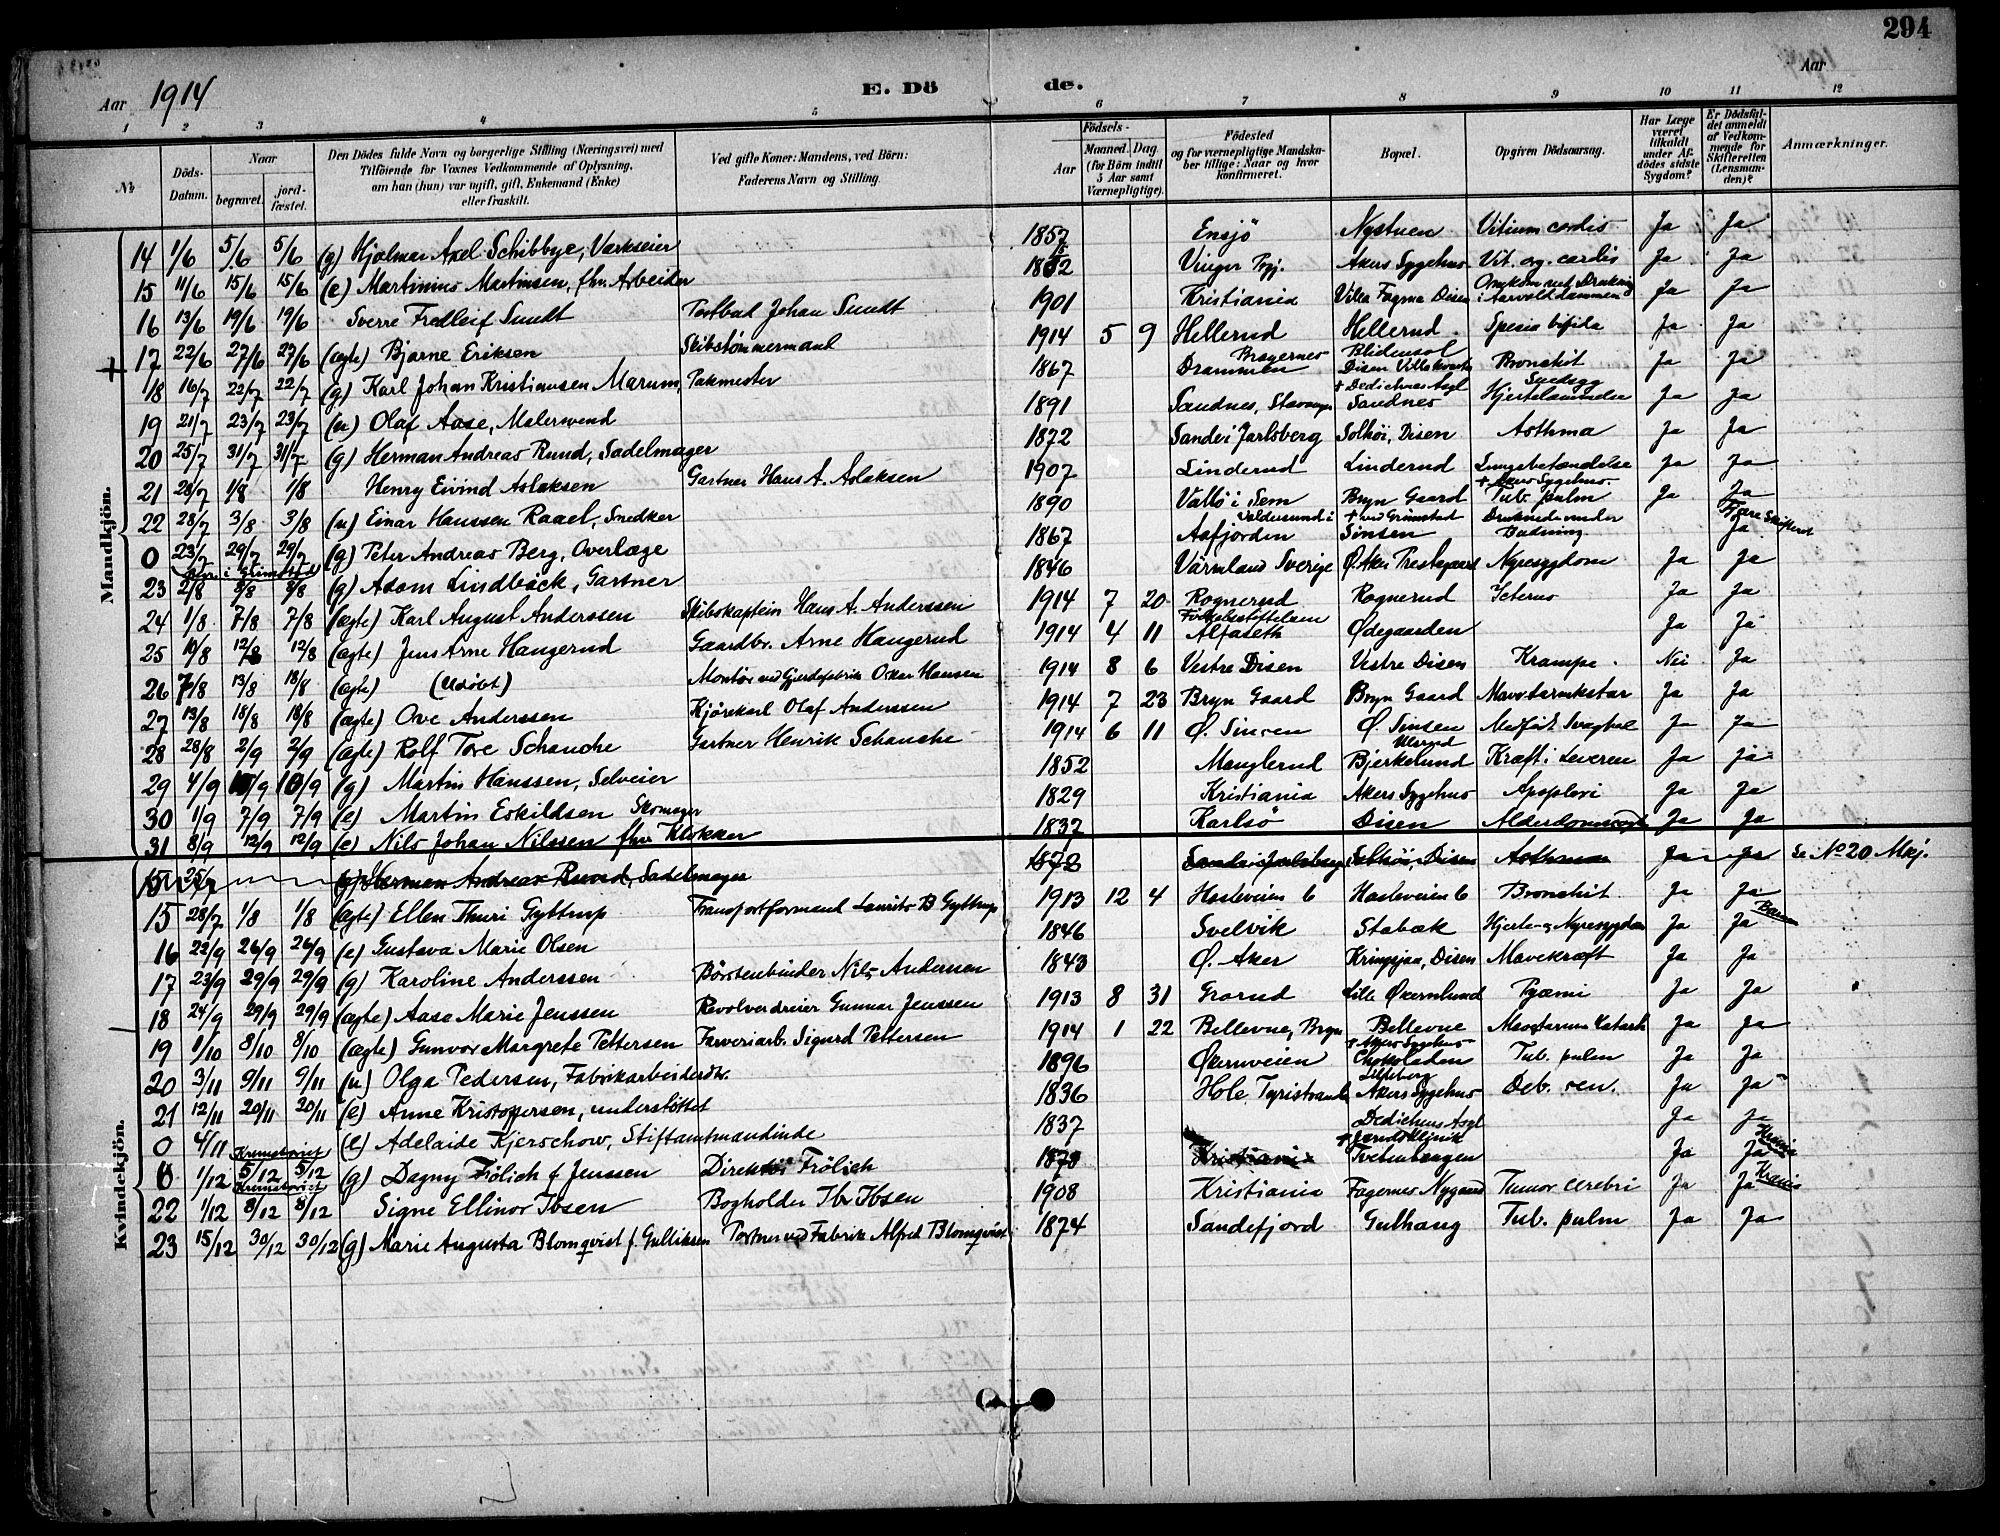 294
Aar 1914 E. Dö de. Aar
1 2 3 4 5 6 7 8 9 10 11 12
No Döds-Datum. Naar begravet. jordfæstet. Den Dödes fulde Navn og borgerlige Stilling (Næringsvei) med Tilföiende for Voxnes Vedkommende af Oplysning, om han (hun) var ugift, gift, Enkemand (Enke) eller fraskilt. Ved gifte Koner: Mandens, ved Börn: Faderens Navn og Stilling. Födsels- Aar Maaned. Dag. (for Börn indtil 5 Aar samt Værnepligtige). Födested og for værnepligtige Mandskaber tillige: Naar og hvor konfirmeret. Bopæl. Opgiven Dödsaarsag. Har Læge været tilkaldt under Afdödes sidste Sygdom? Er Dödsfaldet anmeldt af Vedkommende for Skifteretten (Lensmanden)? Anmærkninger.
Mandkjön.
14 1/6 5/6 5/6 (g) Hjalmar Axel Schibbye, Værkseier 1857 Ensjö Nystuen Vitium cordis Ja Ja
15 11/6 15/6 15/6 (e) Martinius Martinsen, fhv. Arbeider Vinger Akers Sygehus Vit. org. cordis Ja Ja
16 13/6 19/6 19/6 Sverre Fredleif Sundt Postbud Johan Sundt 1901 Kristiania Villa Fagmo Disen Omkom ved Drukning i Aarvolddammen Ja Ja
17 22/6 27/6 27/6 (ægte) Bjarne Eriksen Skibstømmermand 1914 5 9 Hellerud Hellerud Spesia bifida Ja Ja
18 16/7 22/7 22/7 (g) Karl Johan Kristiansen Marum, Pakmester 1867 Bragernes Drammen Blidensol Disen Bronchit Ja Ja
19 21/7 23/7 23/7 (u) Olaf Aase, Malersvend 1891 Sandnes, Stavanger + Dedichens Asyl Sandnes Ja Ja
20 25/7 31/7 31/7 (g) Herman Andreas Ruud, Sadelmager 1872 Sande i Jarlsberg Solhöi, Disen Asthma Ja Ja
21 28/7 1/8 1/8 Henry Eivind Aslaksen Gartner Hans A. Aslaksen 1907 Linderud Linderud Lungebetændelse Ja Ja
22 28/7 3/8 3/8 (u) Einar Hanssen Raael, Snedker 1890 Vallö i Sem Bryn Gaard + Akers Sygehus Tub. pulm Ja Ja
0 23/7 29/7 29/7 (g) Peter Andreas Berg, Overlæge 1867 Valdersund i Aafjorden + ved Grimstad Sinsen Druknede under Badning Ja
23 2/8 8/8 8/8 (g) Adam Lindbäck, Gartner 1846 Värmland Sverige Ø. Aker Prestegaard Nyresygdom Ja Ja
24 1/8 7/8 7/8 (ægte) Karl August Anderssen Skibskaptein Hans A. Anderssen 1914 7 20 Rognerud Rognerud Icterus Ja Ja
25 10/8 12/8 12/8 (ægte) Jens Arne Haugerud Gaardbr. Arne Haugerud 1914 4 11 Födselsstiftelsen Alfaseth Ødegaarden Ja Ja
26 7/8 13/8 18/8 (ægte) (Udöbt) Montör ved Gjerdefabrik Oskar Hansen 1914 8 6 Vestre Disen Vestre Disen Krampe. Nei Ja
27 13/8 18/8 18/8 (ægte) Ove Anderssen Kjörekarl Olaf Anderssen 1914 7 23 Bryn Gaard Bryn Gaard Mavetarmkatar Ja Ja
28 28/8 2/9 2/9 (ægte) Rolf Tore Schanche Gartner Henrik Schanche 1914 6 11 Ø. Sinsen Ø. Sinsen Medfödt Svaghed Ja Ja
29 4/9 10/9 10/9 (g) Martin Hanssen, Selveier 1852 Manglerud Ulsrud Bjerkelund Kræft i Leveren Ja ja
30 1/9 7/9 7/9 (e) Martin Eskildsen Skomager 1829 Kristiania Akers Sygehus Apoplexi Ja Ja
31 8/9 12/9 12/9 (e) Nils Johan Nilssen fhv. Klokker 1837 Karlsö Disen Ja Ja
Kvindekjön.
15 25/7 (g) Herman Andreas Ruud, Sadelmager 1872 Sande i Jarlsberg Solhöi, Disen Asthma Ja Ja Se No 20 Mkj.
15 28/7 1/8 1/8 (ægte) Ellen Thuri Gyttrup Transportformand Laurits B Gyttrup 1913 12 4 Hasleveien 6 Hasleveien 6 Bronchit Ja Ja
16 22/9 26/9 26/9 (e) Gustava Marie Olsen 1846 Svelvik Stabæk Hjerte- og Nyresygdom Ja Ja
17 23/9 29/9 29/9 (g) Karoline Anderssen Börstenbinder Nils Anderssen 1843 Ø. Aker Kringsjaa, Disen Mavekræft Ja Ja
18 24/9 29/9 29/9 (ægte) Aase Marie Jenssen Revolverdreier Gunnar Jenssen 1913 8 31 Grorud Lille Økernlund Pyæmi Ja Ja
19 1/10 8/10 8/10 (ægte) Gunvor Margrete Pettersen Farveriarb. Sigurd Pettersen 1914 1 22 Bellevue, Bryn Bellevue Ja Ja
20 3/11 9/11 9/11 (u) Olga Pedersen, Fabrikarbeiderske 1896 Økernveien + Akers Sygehus Chokoladen Tub. pulm Ja Ja
21 12/11 20/11 20/11 (e) Anne Kristoffersen, understöttet 1836 Hole Tyristrand Lilleberg Akers Sygehus Deb. sen. Ja Ja
0 4/11 (e) Adelaide Kjerschow, Stiftamtmandinde 1837 Dedichens Asyl Ja Ja
0 1/12 Krematoriet 5/12 5/12 (g) Dagny Frölich f. Jenssen Direktör Frölich 1878 Kristiania Tvetenhaugen Ja Ja
22 1/12 Krematoriet 8/12 8/12 Signe Ellinor Ibsen Bogholder Ibsen 1908 Kristiania Fagernes Nygaard Tumor cerebri Ja Ja
23 15/12 30/12 30/12 (g) Marie Augusta Blomqvist f. Gulliksen Portner ved Fabrik Alfred Blomqvist 1874 Sandefjord Gulhaug Tub. pulm Ja Ja